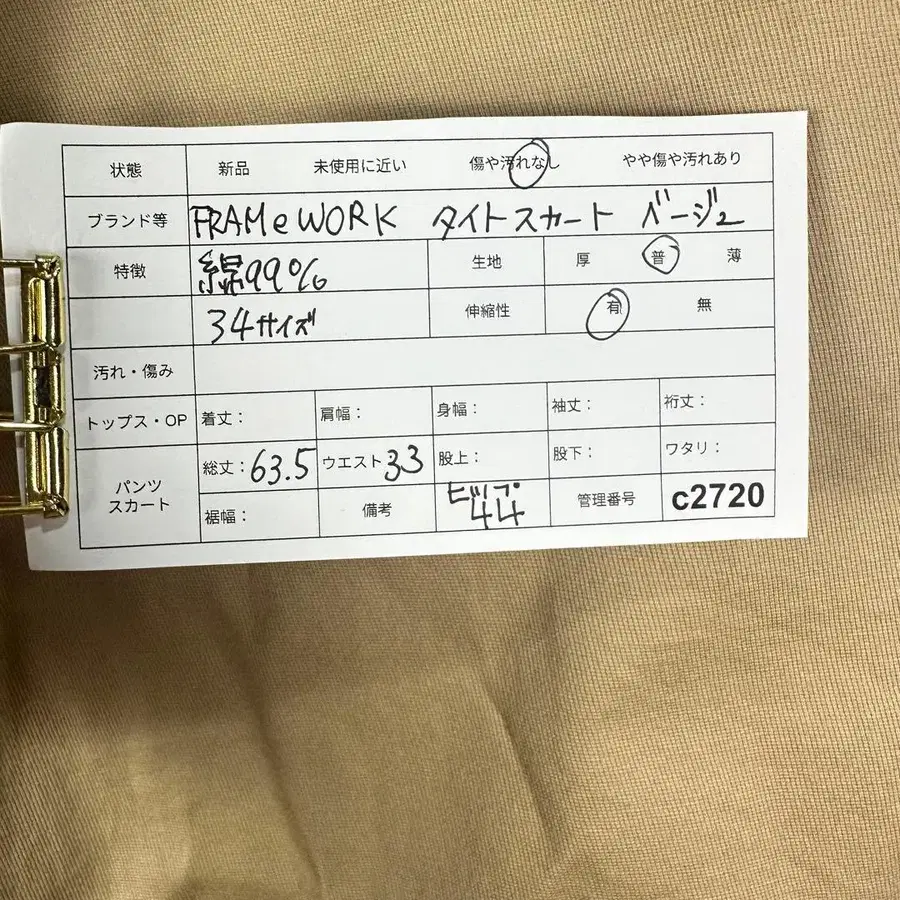 状態 新品 未使用に近い 傷や汚れなし やや傷や汚れあり
ブランド等 FRAMeWORK タイトスカート ベージュ
特徴 綿99% 生地 厚 普 薄
34サイズ 伸縮性 有 無
汚れ・傷み
トップス・OP 着丈: 肩幅: 身幅: 袖丈: 裄丈:
パンツ スカート 総丈:63.5 ウエスト33 股上: 股下: ワタリ:
裾幅: 備考 ヒップ 44 管理番号 c2720